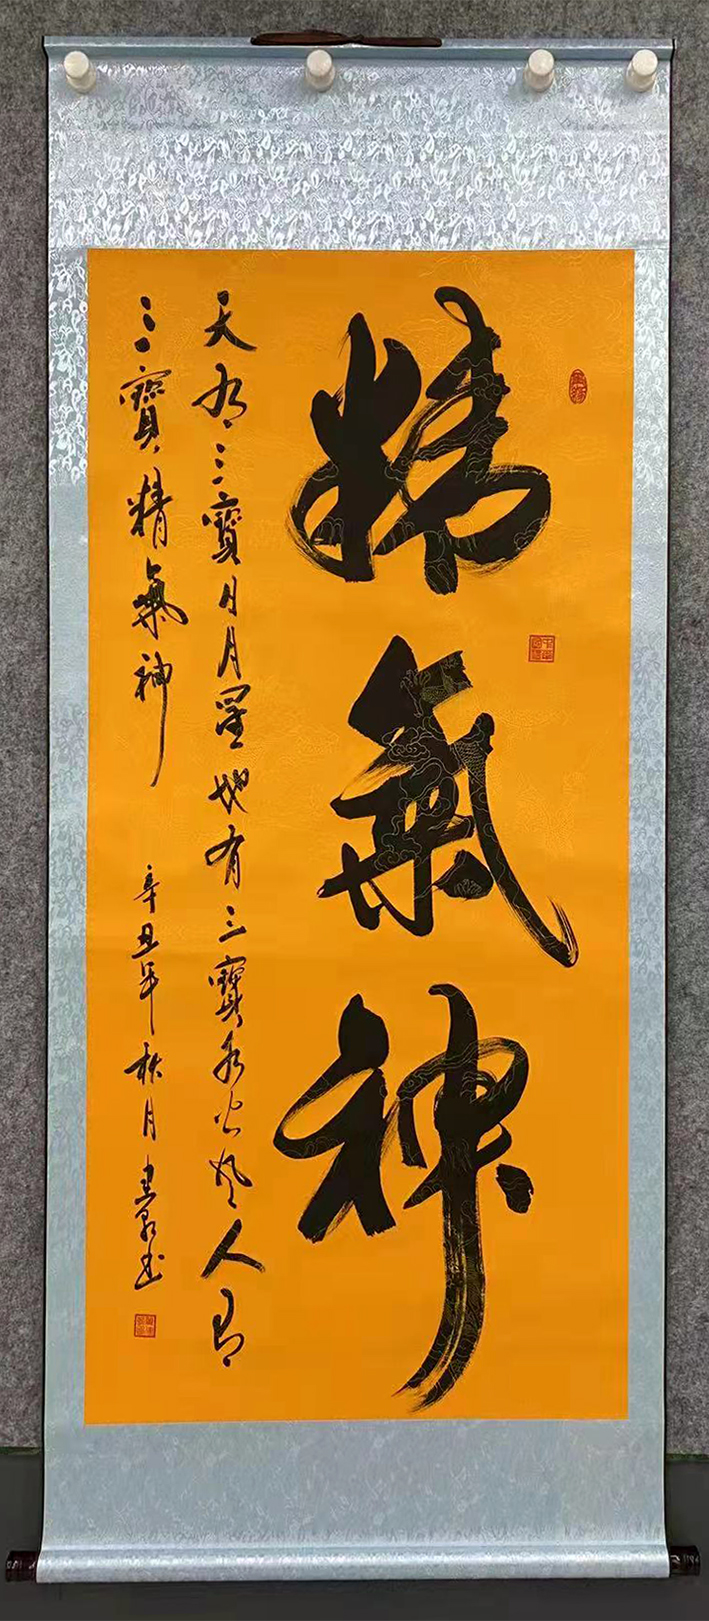 精氣神
天有三寳日月星地有三寳水火風人有
三寳精氣神
辛丑年秋月建泉书